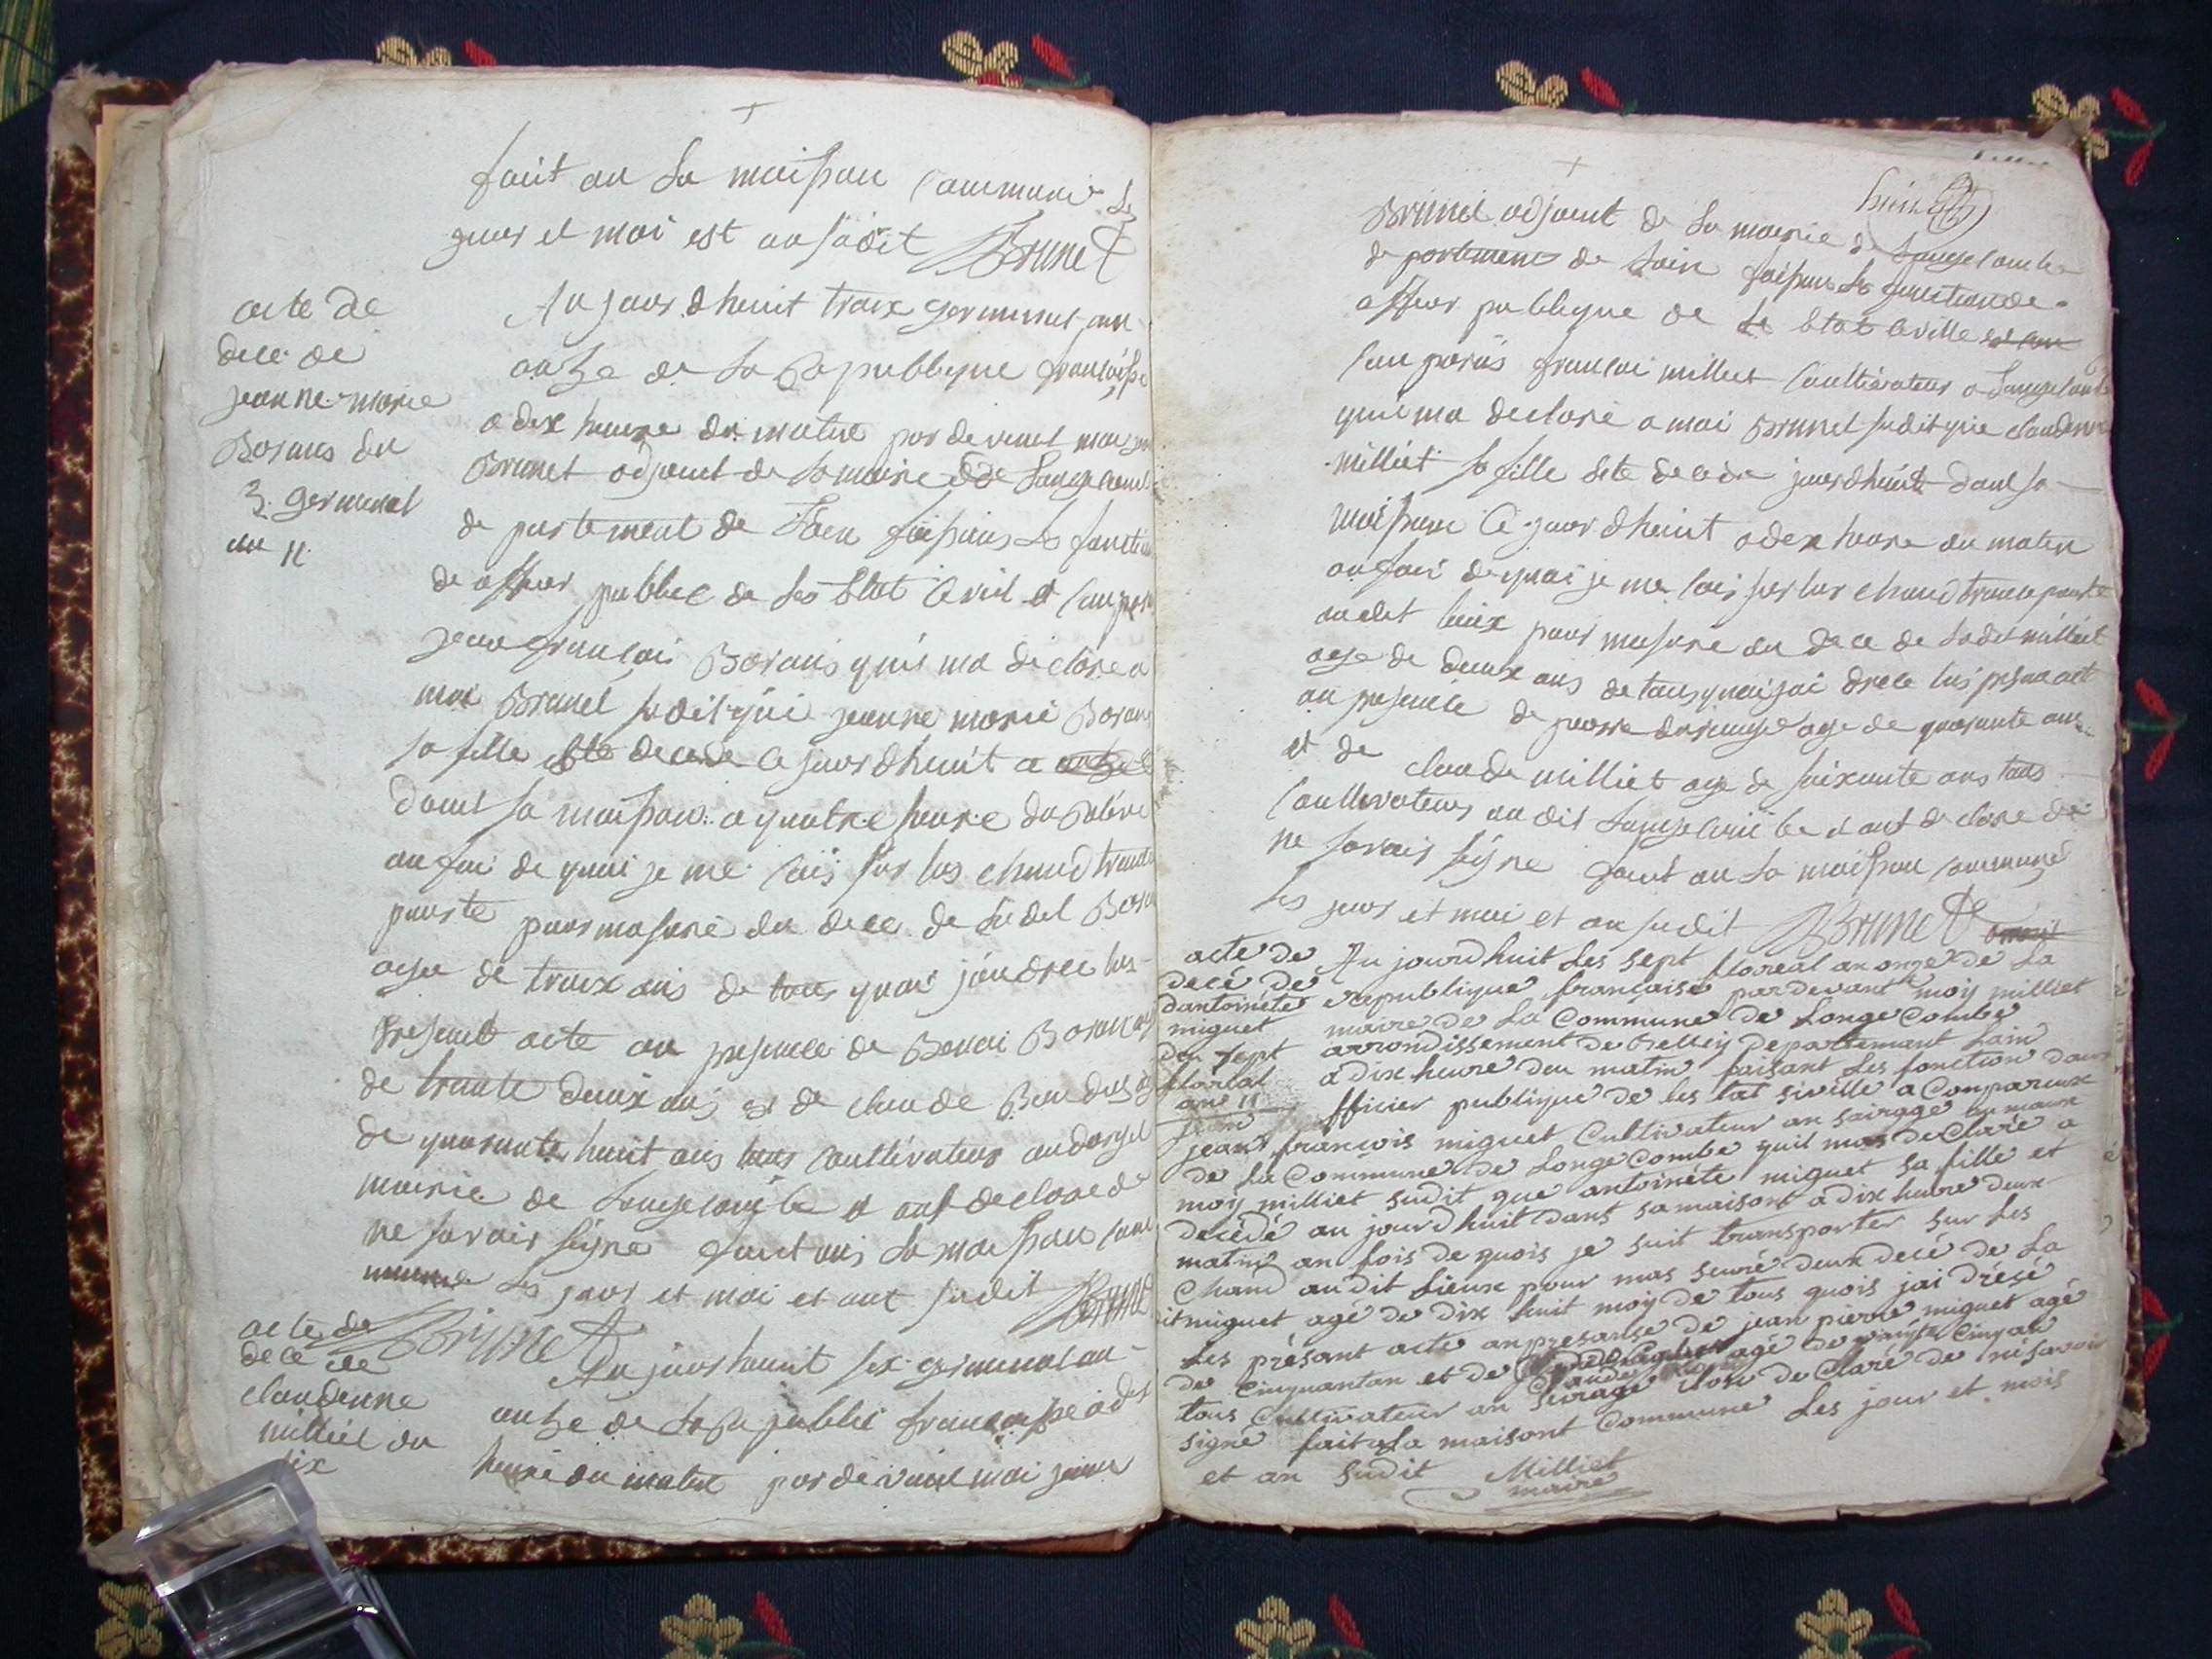 fait an la maison commune le
jour et moi est an sudit Brunet
acte de
dece de
jeanne marie
Borans du
3 germinal
an 11
Au jour d huit traix germinal an
onze de la Republique francaise
a dix heure du matin par devent moi
Brunet adjoint de la mairie de Longecombe
de partement de Lain faisans les fonction
de officer public de les Etat Civil et
jean francois Borans qui ma declare a
moi Brunel sudit qui jeanne marie Borans
sa fille ete decede ce jour d huit a
dans sa maison a quatre heure du
an foi de quoi je me sais sur les chand
pourte pour masure du dece de ladit
agee de traix ans de tous quoi jai drece les
present acte an presence de Benoi Borans
de trante deux ans et de claude
de quarante huit ans tous coultivateur
mairie de Longecombe et ont declare de
ne savoir signe fait an la maison com
mune les jour et moi et ant sudit Brunet
Brunet
acte de
dece de
claudenne
milliet du
six
Au jour huit six germinal an
onze de la Republi francaise a dix
heure du matin par devant moi jeans
Brunet adjoint de la mairie de Longecombe
de partement de Lain faisans les fonction de
officer publique de le Etat Civille
francoi milliet coultivateur a Longecombe
qui ma declare a moi Brunet sudit que claudenne
milliet sa fille ete decede jour d huit dans sa
maison ce jour d huit a dex heure du maten
an foi de quoi je me sais sur les chand transpourte
au dit lieux pour masure du dece de ladit milliet
age de deux ans de tous quoi jai drece les present act
an presence de age de quarante ans
et de claude milliet age de soixante ans tous
coultivateur au dit Longecombe et ont declare de
ne savoir signe fait an la maison commune
les jour et moi et an sudit Brunet
acte de
decé de
dantoinete
miguet
du sept
floréal
ane 11
Au jourdhuit Les sept floreal an onze de La
republique française par devant moy milliet
maire de La Commune de Longe Combe
arrondissement de Belley departemant Lain
a dix heure deu matin faisant Les fonction dau
fficier publique de les tat siville a Conpareux
jean françois miguet Cultivateur an sairage
de La Commune de Longe Combe quil mas deClaré a
moy milliet sudit que antoinéte miguet sa fille et
décédé au jourd huit dans samaisont a dix heure deux
matin an fois de quois je suit transporter sur Les
Chand audit Lieux pour mas seuré deux decé de La
it miguet agé de dix huit moy de tous quois jai drésé
Les présant acte anpresanse de jean pierre miguet agé
de Cinquantan et de agé de Cinqan
tous Cultivateur an sirage ion de Claré de nisavoir
signé fait a La maisont Commune Les jour et mois
et an sudit Milliet
maire